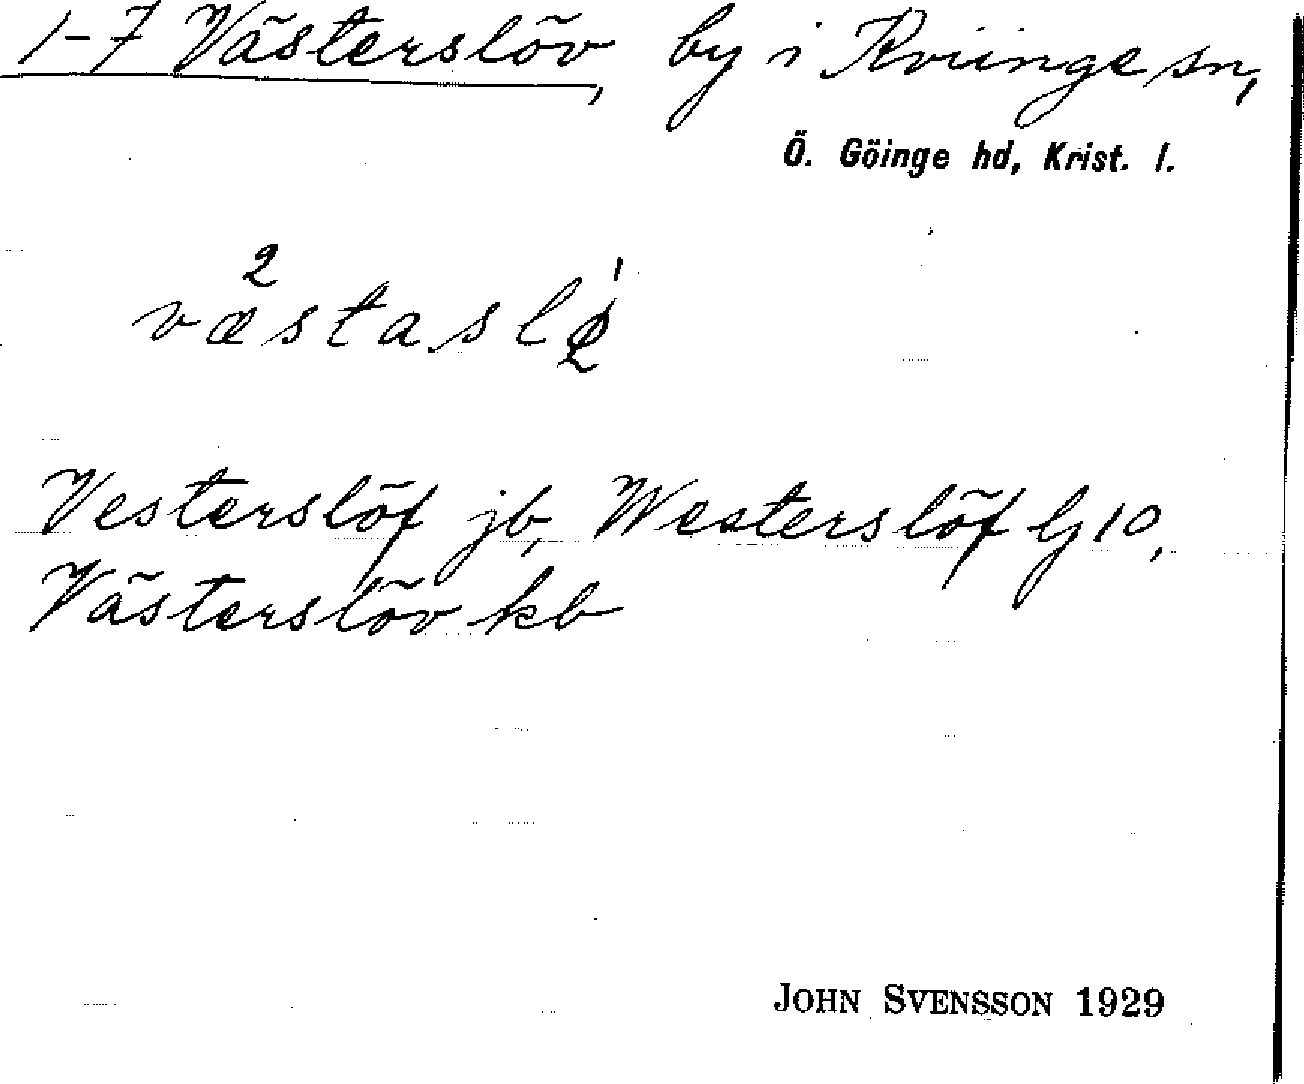 1-7 Västerslöv, by i Kviinge sn,
Ö. Göinge hd, Krist. l.
2 1
væstaslø̨
Vesterslöf jb, Westerslöf Gj 10,
Västerslöv kb
JOHN SVENSSON 1929